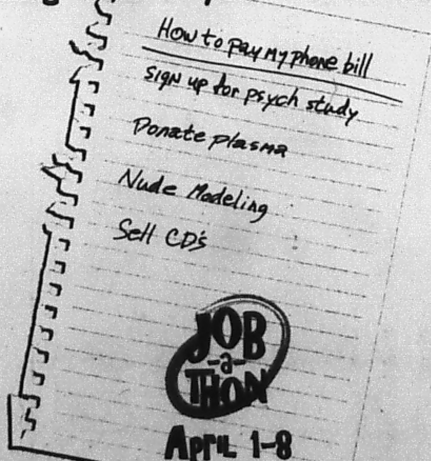 How to pay my phone bill
Sign up for psych study
Donate plasma
Nude Modeling
Sell CD's
JOB
-a-
THON
APRIL 1-8